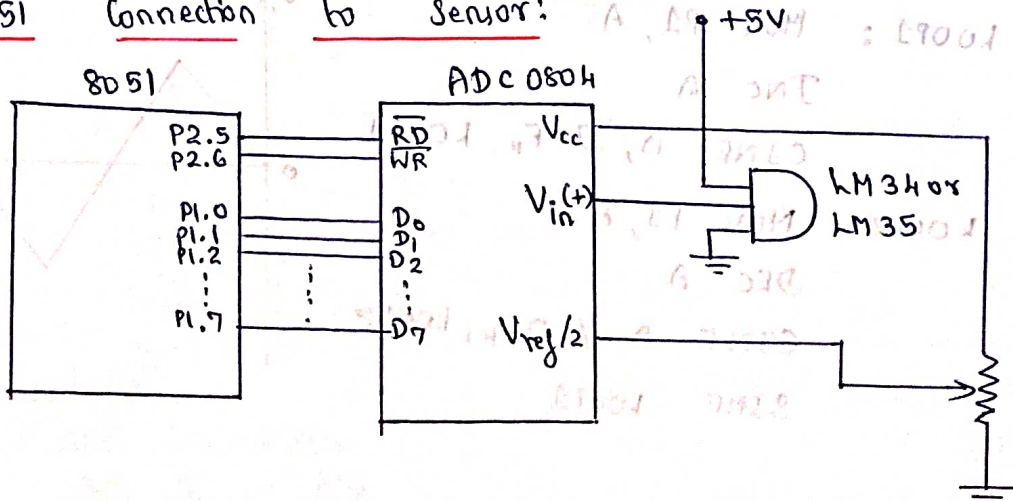 51 Connection to Sensor:
+5V
8051
ADC0804
P2.5
P2.6
P1.0
P1.1
P1.2
P1.7
RD
WR
D0
D1
D2
D7
Vcc
Vin(+)
Vref/2
LM34 or
LM35